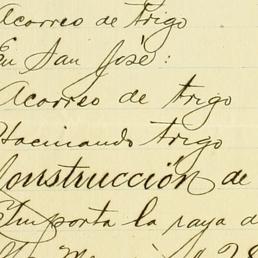 Acarreo de trigo
En San José:
Acarreo de trigo
Hacinando trigo
Construcción de
Importa la raya d